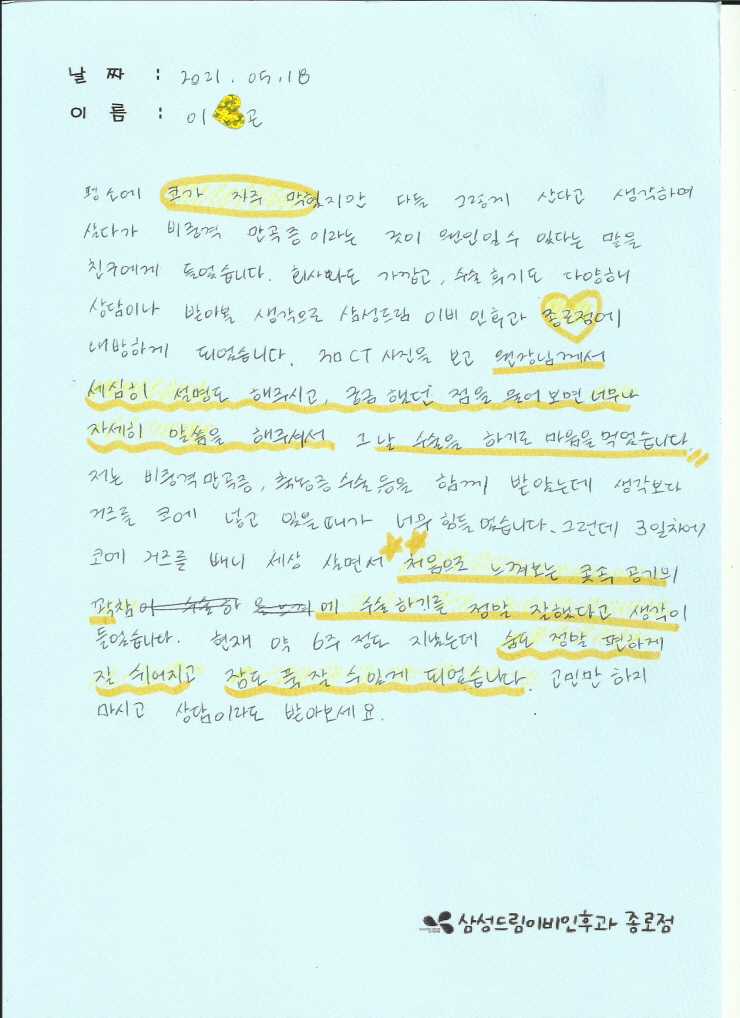 날 짜 : 2021. 05. 18
이 름 : 이 곤
평소에 코가 자주 막혔지만 다들 그렇게 산다고 생각하며
살다가 비중격 만곡증이라는 것이 원인일수 있다는 말을
친구에게 들었습니다. 회사와도 가깝고, 수술 후기도 다양해
상담이나 받아볼 생각으로 삼성드림 이비인후과 종로점에
내방하게 되었습니다. 3D CT 사진을 보고 원장님께서
세심히 설명도 해주시고, 궁금했던 점을 물어보면 너무나
자세히 말씀을 해주셔서 그날 수술을 하기로 마음을 먹었습니다.
저는 비중격만곡증, 축농증 수술 등을 함께 받았는데 생각보다
거즈를 코에 넣고 있을때가 너무 힘들었습니다. 그런데 3일차에
코에 거즈를 빼니 세상 살면서 처음으로 느껴보는 콧속 공기의
꽉참에 수술하기를 정말 잘했다고 생각이
들었습니다. 현재 약 6주 정도 지났는데 숨도 정말 편하게
잘 쉬어지고 잠도 푹 잘 수있게 되었습니다. 고민만 하지
마시고 상담이라도 받아보세요.
삼성드림이비인후과 종로점